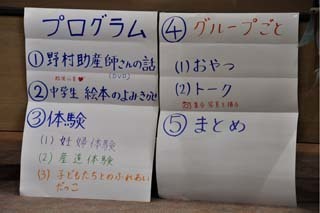 プログラム
①野村助産師さんの話
(DVD)
②中学生 絵本のよみきかせ
③体験
(1) 妊婦体験
(2) 産道体験
(3) 子どもたちとのふれあい
だっこ
④グループごと
(1) おやつ
(2) トーク
⑤まとめ